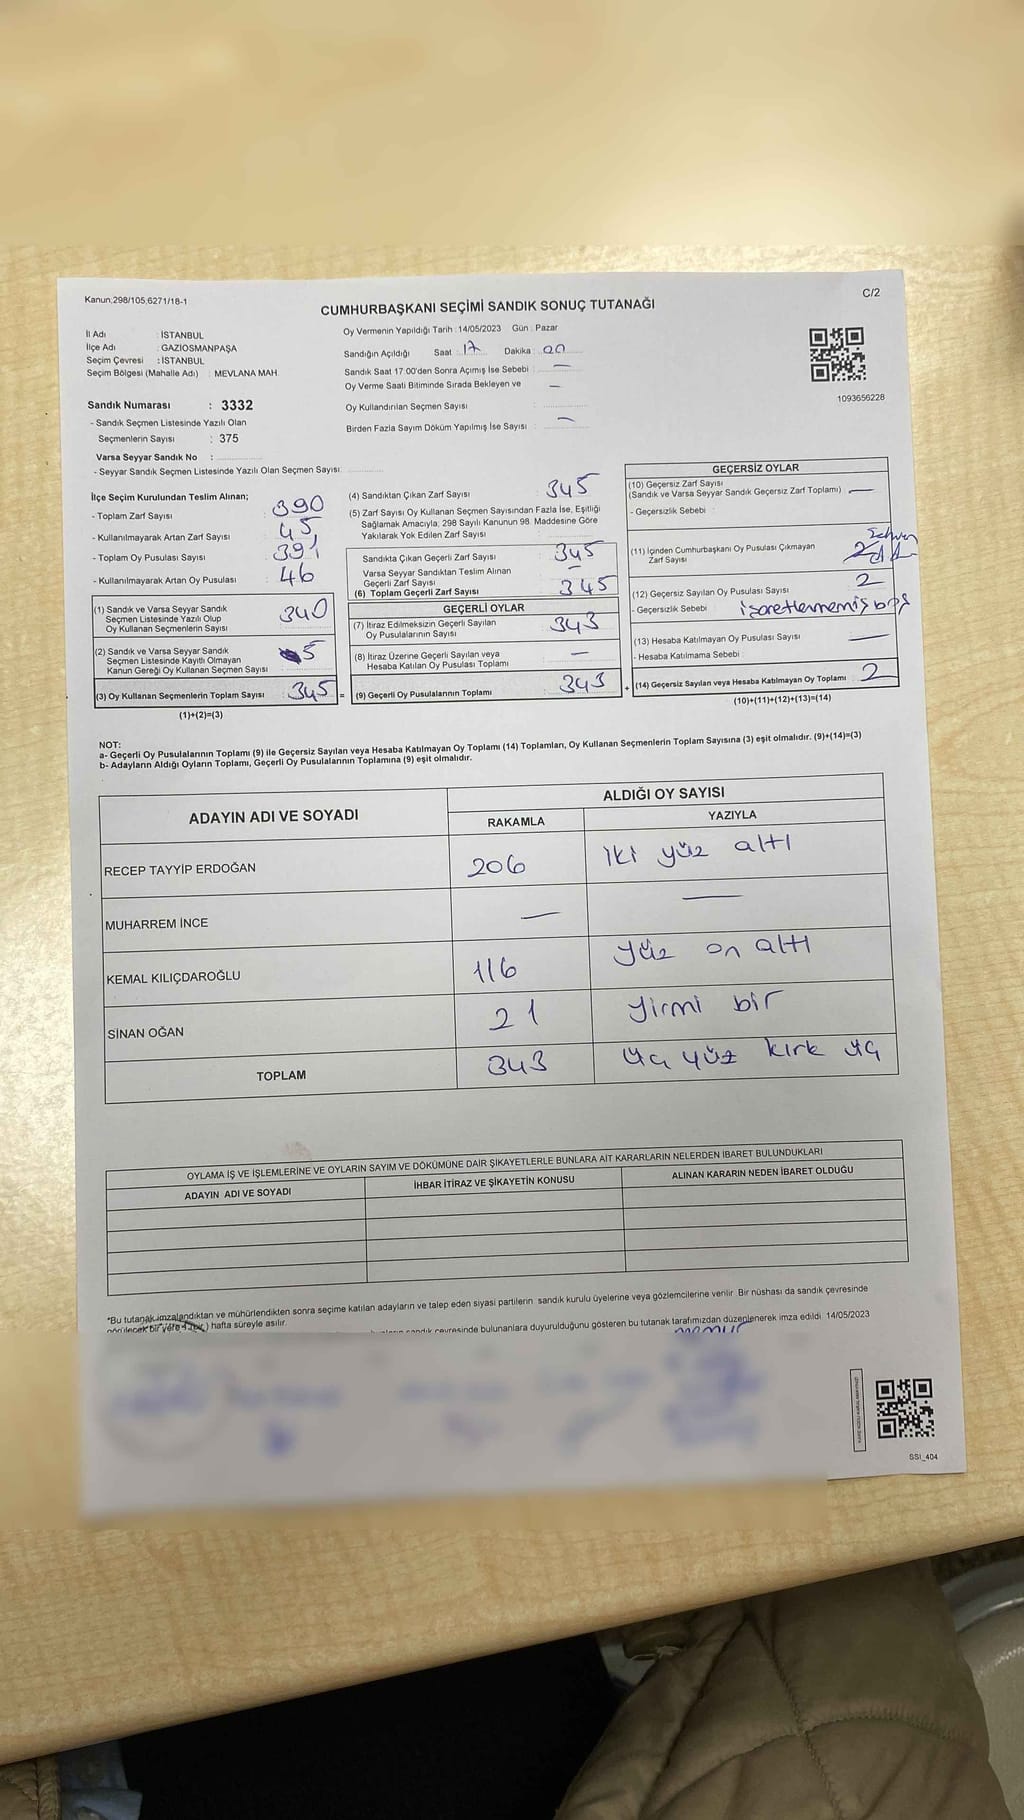 Kanun:298/105;6271/18-1
C/2
CUMHURBAŞKANI SEÇİMİ SANDIK SONUÇ TUTANAĞI
İl Adı : İSTANBUL
İlçe Adı : GAZİOSMANPAŞA
Seçim Çevresi : İSTANBUL
Seçim Bölgesi (Mahalle Adı) : MEVLANA MAH.
Sandık Numarası : 3332
- Sandık Seçmen Listesinde Yazılı Olan
Seçmenlerin Sayısı : 375
Varsa Seyyar Sandık No :
- Seyyar Sandık Seçmen Listesinde Yazılı Olan Seçmen Sayısı:
Oy Vermenin Yapıldığı Tarih : 14/05/2023 Gün : Pazar
Sandığın Açıldığı Saat : 17 Dakika : 00
Sandık Saat 17:00'den Sonra Açımış İse Sebebi : —
Oy Verme Saati Bitiminde Sırada Bekleyen ve —
Oy Kullandırılan Seçmen Sayısı :
Birden Fazla Sayım Döküm Yapılmış İse Sayısı : —
1093656228
İlçe Seçim Kurulundan Teslim Alınan;
- Toplam Zarf Sayısı : 390
- Kullanılmayarak Artan Zarf Sayısı : 45
- Toplam Oy Pusulası Sayısı : 391
- Kullanılmayarak Artan Oy Pusulası : 46
(1) Sandık ve Varsa Seyyar Sandık
Seçmen Listesinde Yazılı Olup
Oy Kullanan Seçmenlerin Sayısı : 340
(2) Sandık ve Varsa Seyyar Sandık
Seçmen Listesinde Kayıtlı Olmayan
Kanun Gereği Oy Kullanan Seçmen Sayısı : 5
(3) Oy Kullanan Seçmenlerin Toplam Sayısı : 345 =
(1)+(2)=(3)
(4) Sandıktan Çıkan Zarf Sayısı : 345
(5) Zarf Sayısı Oy Kullanan Seçmen Sayısından Fazla İse, Eşitliği
Sağlamak Amacıyla, 298 Sayılı Kanunun 98. Maddesine Göre
Yakılarak Yok Edilen Zarf Sayısı :
Sandıkta Çıkan Geçerli Zarf Sayısı : 345
Varsa Seyyar Sandıktan Teslim Alınan
Geçerli Zarf Sayısı : —
(6) Toplam Geçerli Zarf Sayısı : 345
GEÇERLİ OYLAR
(7) İtiraz Edilmeksizin Geçerli Sayılan
Oy Pusulalarının Sayısı : 343
(8) İtiraz Üzerine Geçerli Sayılan veya
Hesaba Katılan Oy Pusulası Toplamı : —
(9) Geçerli Oy Pusulalarının Toplamı : 343 +
GEÇERSİZ OYLAR
(10) Geçersiz Zarf Sayısı
(Sandık ve Varsa Seyyar Sandık Geçersiz Zarf Toplamı) : —
- Geçersizlik Sebebi :
(11) İçinden Cumhurbaşkanı Oy Pusulası Çıkmayan
Zarf Sayısı
(12) Geçersiz Sayılan Oy Pusulası Sayısı : 2
- Geçersizlik Sebebi : işaretlenmemiş boş
(13) Hesaba Katılmayan Oy Pusulası Sayısı : —
- Hesaba Katılmama Sebebi :
(14) Geçersiz Sayılan veya Hesaba Katılmayan Oy Toplamı : 2
(10)+(11)+(12)+(13)=(14)
NOT:
a- Geçerli Oy Pusulalarının Toplamı (9) ile Geçersiz Sayılan veya Hesaba Katılmayan Oy Toplamı (14) Toplamları, Oy Kullanan Seçmenlerin Toplam Sayısına (3) eşit olmalıdır. (9)+(14)=(3)
b- Adayların Aldığı Oyların Toplamı, Geçerli Oy Pusulalarının Toplamına (9) eşit olmalıdır.
ADAYIN ADI VE SOYADI
ALDIĞI OY SAYISI
RAKAMLA YAZIYLA
RECEP TAYYİP ERDOĞAN 206 iki yüz altı
MUHARREM İNCE — —
KEMAL KILIÇDAROĞLU 116 yüz on altı
SİNAN OĞAN 21 yirmi bir
TOPLAM 343 üç yüz kırk üç
OYLAMA İŞ VE İŞLEMLERİNE VE OYLARIN SAYIM VE DÖKÜMÜNE DAİR ŞİKAYETLERLE BUNLARA AİT KARARLARIN NELERDEN İBARET BULUNDUKLARI
ADAYIN ADI VE SOYADI İHBAR İTİRAZ VE ŞİKAYETİN KONUSU ALINAN KARARIN NEDEN İBARET OLDUĞU
*Bu tutanak imzalandıktan ve mühürlendikten sonra seçime katılan adayların ve talep eden siyasi partilerin sandık kurulu üyelerine veya gözlemcilerine verilir. Bir nüshası da sandık çevresinde
görülecek bir yere 1 (bir) hafta süreyle asılır.
sandık çevresinde bulunanlara duyurulduğunu gösteren bu tutanak tarafımızdan düzenlenerek imza edildi. 14/05/2023
memur
SSI_404